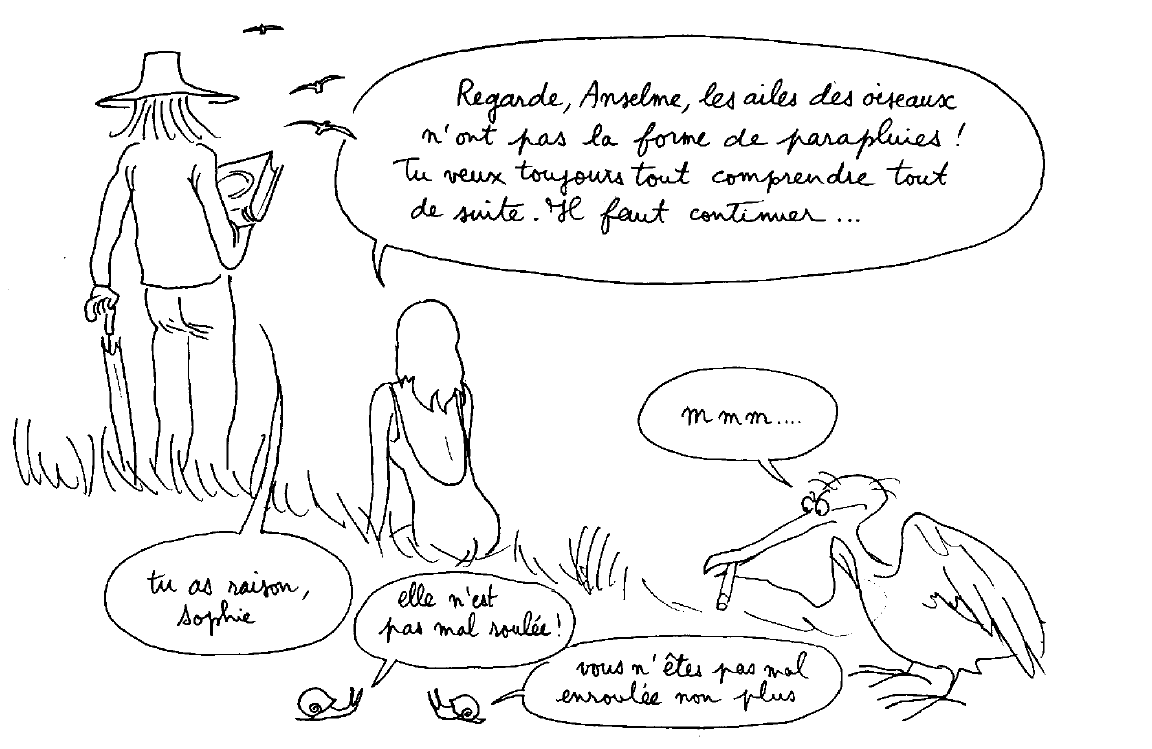 Regarde, Anselme, les ailes des oiseaux
n'ont pas la forme de parapluies !
Tu veux toujours tout comprendre tout
de suite. Il faut continuer ...
m m m ....
tu as raison,
Sophie
elle n'est
pas mal roulée !
vous n'êtes pas mal
enroulée non plus